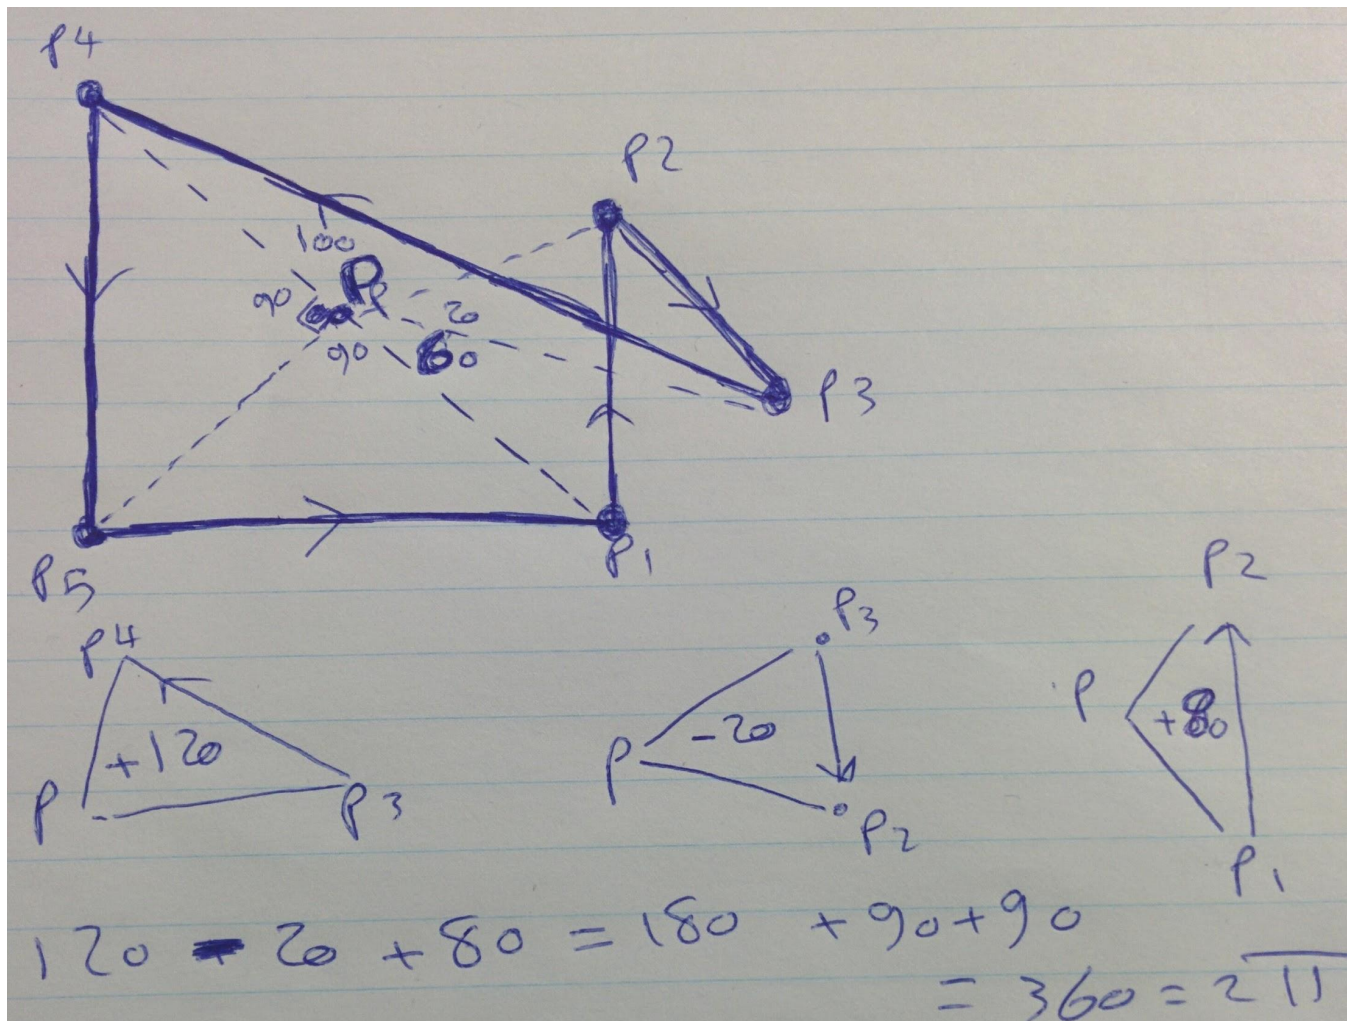 P4
P2
100
P
90
20
90
60
P3
P5
P1
P4
+120
P
P3
P3
-20
P
P2
P2
P
+80
P1
120 - 20 + 80 = 180 + 90 + 90
= 360 = 2π